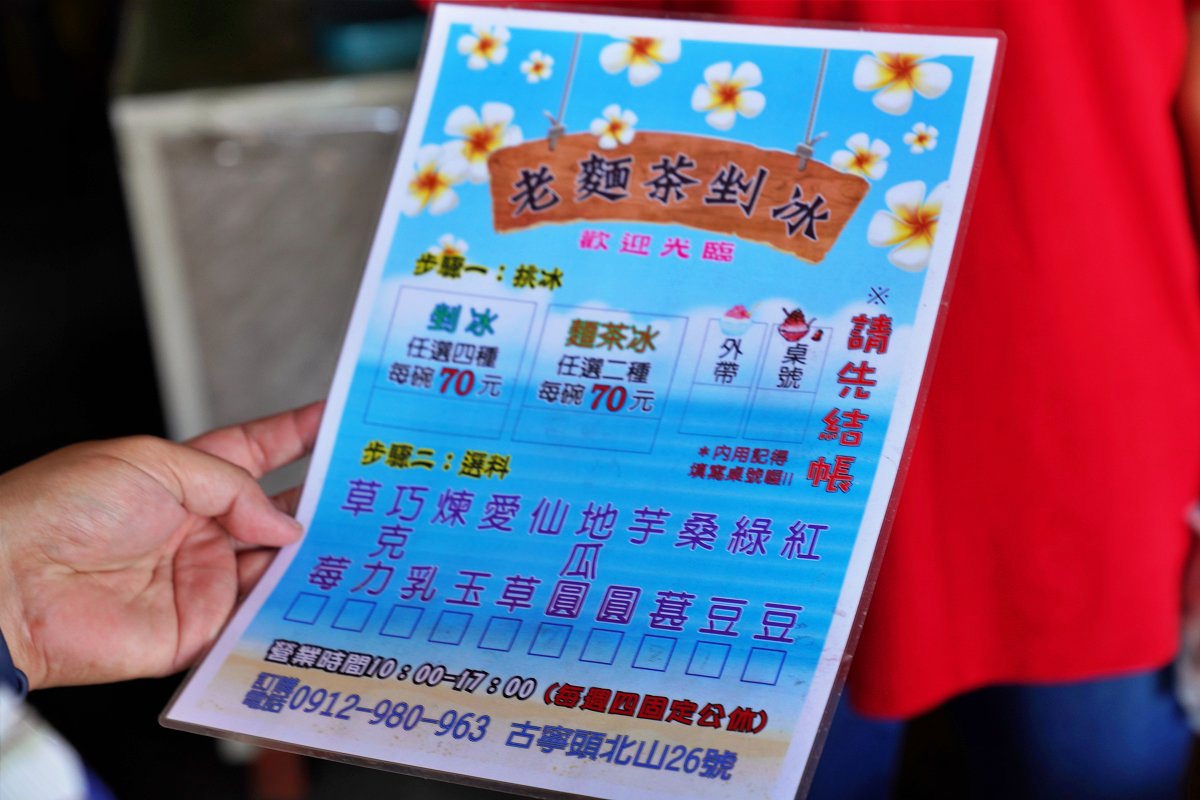 老麵茶剉冰
歡迎光臨
步驟一：挑冰
剉冰
任選四種
每碗70元
麵茶冰
任選二種
每碗70元
外帶
桌號
※請先結帳
＊內用記得
填寫桌號喔!!
步驟二：選料
草莓
巧克力
煉乳
愛玉
仙草
地瓜圓
芋圓
桑葚
綠豆
紅豆
營業時間10：00-17：00（每週四固定公休）
訂購電話0912-980-963 古寧頭北山26號